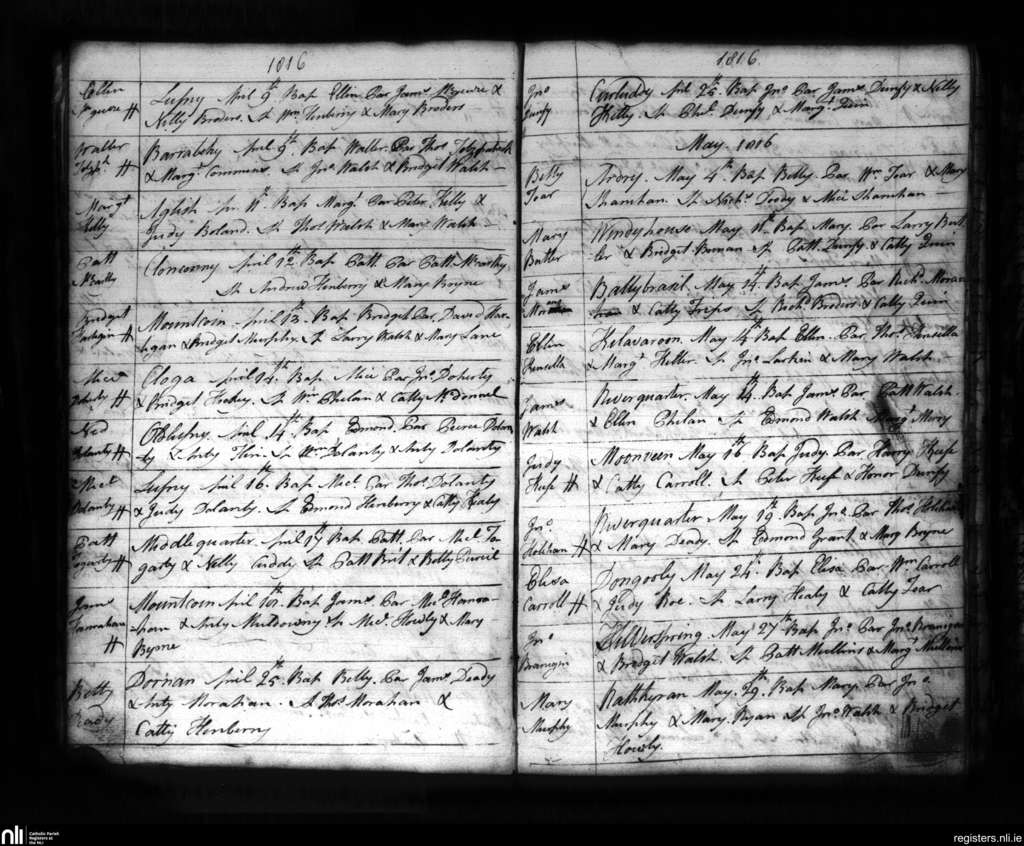 1816
Ellen
#
Lufny April 9th Bap Ellin Par Jams &
Nelly Broders. Sp Wm Henberry & Mary Broders
Walter
#
Barrabehy April 9th Bap Walter. Par Thos Fitzpatrick
& Margt Commins. Sp Jno Walsh & Bridget Walsh
Margt
Kelly
Aglish Ap. 11th Bap Margt Par Peter Kelly &
Judy Boland. Sp Thos Walsh & Mary Walsh
Patt
Cloneony April 12th Bap Patt. Par Patt
Sp Andrew Henberry & Mary Bryne
Bridget
#
Mountcoin April 13th Bap Bridget Par David
& Bridget Murphy. Sp Larry Walsh & Mary Lane
Alice
Doherty #
Cloga April 14th Bap Alice Par Jno Doherty
& Bridget Sp Wm Phelan & Catty McDonnel
Ned
Dolanty #
April 14th Bap Edmond. Par Pierce Dolan
ty & Anty Sp Wm Dolanty & Anty Dolanty
Micl
Dolanty #
Lufny April 16th Bap Micl Par Thos Dolanty
& Judy Dolanty. Sp Edmond Henberry & Catty Healy
Patt
Fogarty #
Middlequarter. April 17 Bap Patt. Par Micl Fo
garty & Nelly Cuddy Sp Patt Brit & Betty Purcil
Jams
Hanrahan
#
Mountcoin April 18th Bap Jams. Par Micl Hanra
han & Anty Muldowny Sp Micl Howly & Mary
Byrne
Betty
Deady
Dornan April 25th Bap Betty. Par Jams Deady
& Anty Morahan. Sp Thos Morahan &
Catty Henberry
1816.
Jno
Dunfy
Curluddy April 25th Bap Jno Par Jams Dunfy & Nelly
Kelly. Sp Phil Dunfy & Margt Quin
May 1816
Betty
Tear
Ardry. May 4th Bap Betty. Par Wm Tear & Mary
Shanahan. Sp Nichs & Alice Shanahan
Mary
Butler
Windyhouse May 11th Bap Mary. Par Larry But
ler & Bridget Sp Patt Dunfy & Catty Quin
Jams
Ballybrasil. May 14. Bap Jams Par Richd Moran
& Catty Sp Richd Broders & Catty Quin
Ellen
Kinsella
Kelavaroon. May 14th Bap Ellen. Par Thos Kinsella
& Margt Sp Jno Larkin & Mary Walsh
Jams
Walsh
Niverquarter. May 14th Bap Jams Par Patt Walsh
& Ellen Phelan Sp Edmond Walsh Mary
Judy
#
Moonveen May 16th Bap Judy. Par Harry
& Catty Carroll. Sp Peter & Honor Dunfy
Jno
#
Niverquarter May 19th Bap Jno. Par Thos
& Mary Deady. Sp Edmond Grant & Mary Bryne
Elisa
Carroll #
Dongooly May 24th Bap Elisa Par Wm Carroll
& Judy Roe. Sp Larry Healy & Catty Tear
Jno
Branigin
Silverspring May 27th Bap Jno Par Jno Branigan
& Bridget Walsh. Sp Patt Mullins & Margt Mullins
Mary
Murphy
Rathkyran May. 29th Bap Mary Par Jno.
Murphy & Mary Ryan Sp Jno Walsh & Bridget
Howly.
nli
Catholic Parish
Registers at
the NLI
registers.nli.ie